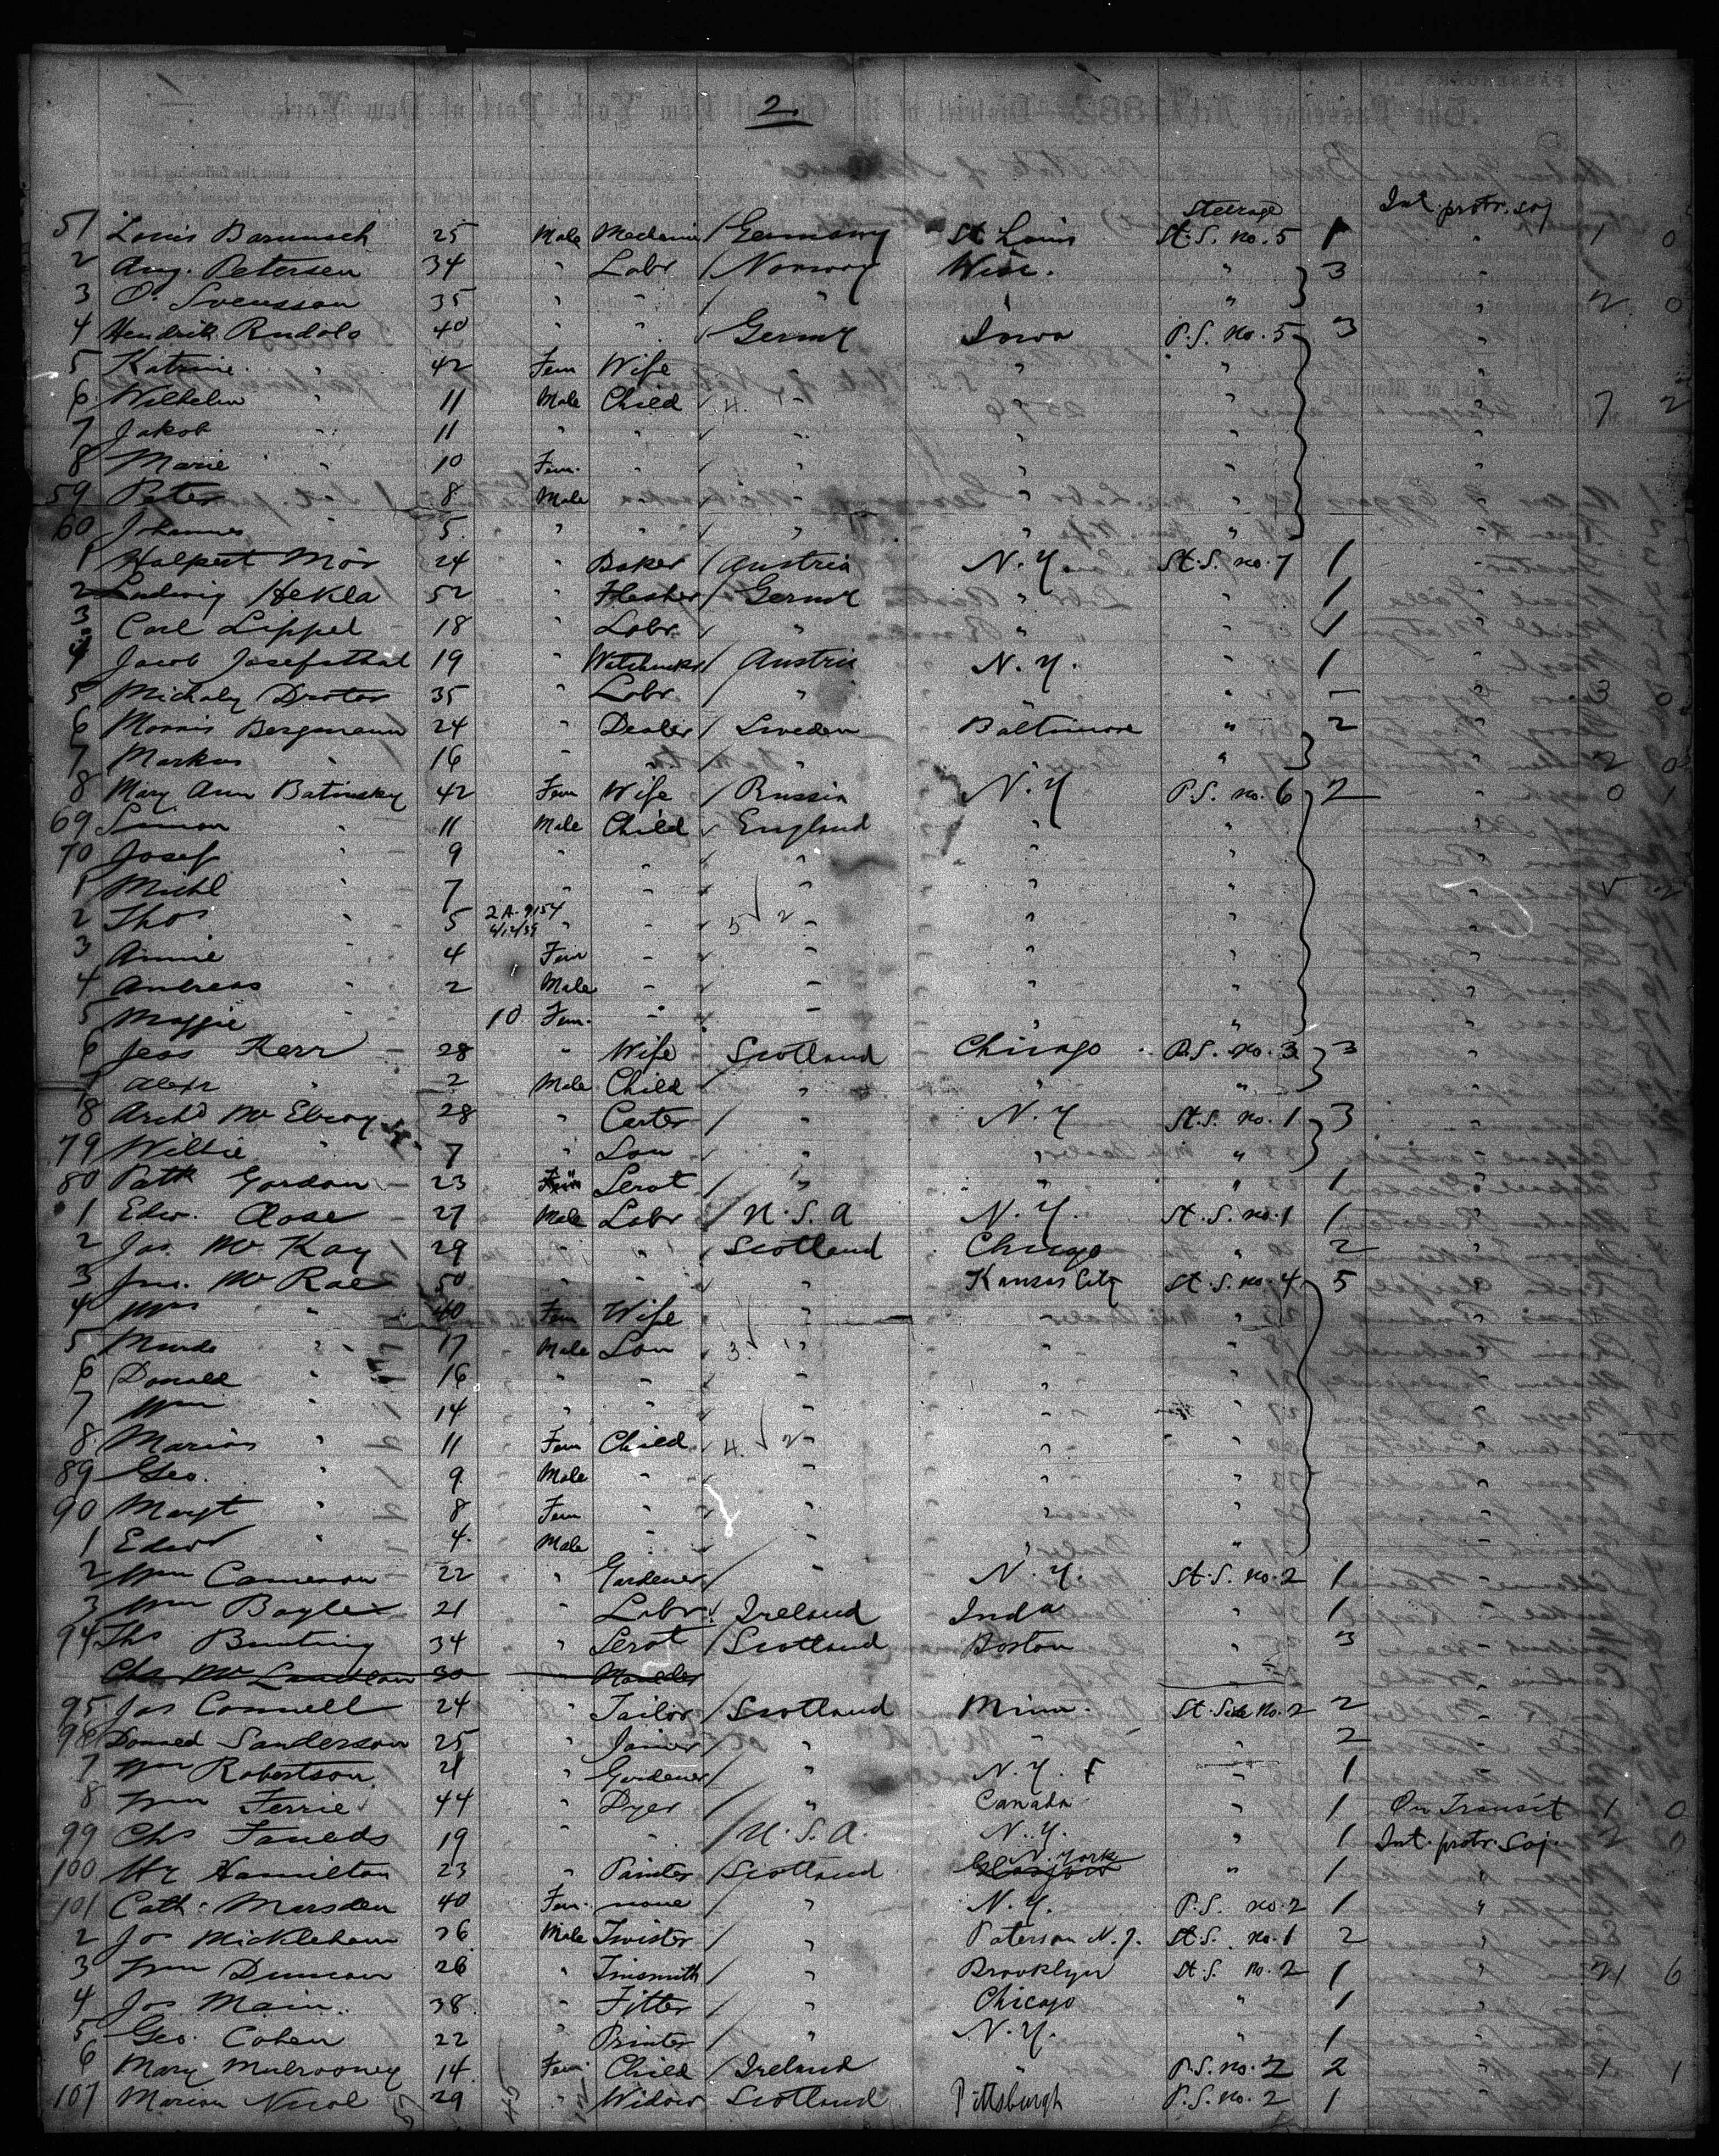 2.
Steerage Int. protr. soj
51 Louis Barunsch 25 Male Mechanic / Germany St Louis St. S. no. 5 1 " 1 0
2 Aug. Petersen 34 " Labr / Norway Wisc. " 3 "
3 O. Svensson 35 " " / " " " " 2 0
4 Hendrik Rudolo 40 " " / Germy Iowa P.S. no. 5 3 "
5 Katrine " 42 Fem Wife " " " "
6 Wilhelm " 11 Male Child 4. " " " " 7 2
7 Jakob " 11 " " " " " "
8 Marie " 10 Fem. " " " " "
59 Peter 8 Male " " " "
60 Johannes 5 " " " " " "
1 Halpert Mor 24 " Baker / Austria N.Y. St. S. no. 7 1 "
2 Ludwig Hekla 52 " Flesher / Germy " " 1 "
3 Carl Lippel 18 " Labr " " " 1 "
4 Jacob Josefsthal 19 " Watchmkr / Austria N.Y. " 1 "
5 Michaly Drotos 35 " Labr / " " " 3 0
6 Morris Bergmann 24 " Dealer / Sweden Baltimore " 2 "
7 Markus " 16 " " / " " " 2 0
8 Mary Ann Batinsky 42 Fem Wife / Russia N.Y P.S. no. 6 2 " 0 1
69 Simon " 11 Male Child England " " "
70 Josef " 9 " " " " " "
1 Michl " 7 " " " " " " 5 2
2 Thos " 5 2 A-9154 " " 5 2 " " " "
4/12/39
3 Annie " 4 Fem " " " " "
4 Andreas " 2 Male " " " " "
5 Maggie " 10 Fem. " " " " "
6 Jess Kerr 28 " Wife Scotland Chicago P.S. no. 3 3 "
7 Alexr " 2 Male Child / " " " "
8 Archd McElroy 28 " Carter / " N.Y St. S. no. 1 3 "
79 Willie " 7 " Son " " " "
80 Patk Gordon 23 Servt / " " " 1 "
1 Edw. Close 27 Male Labr / U.S.A N.Y. St. S. no. 1 1 "
2 Jas. McKay 29 " " / Scotland Chicago " 2 "
3 Jno. McRae 50 " " " Kansas City St. S. no. 4 5 "
4 Mrs " 40 Fem Wife " " " "
5 Murdo " 17 Male Son 3. " " " "
6 Donald " 16 " " " " " "
7 Wm " 14 " " " " " "
8 Marion " 11 Fem Child 4. 2 " " " "
89 Geo. " 9 Male " " " " "
90 Margt " 8 Fem " " " " "
1 Edwd " 4 Male " " " " "
2 Wm Cameron 22 " Gardener / " N.Y. St. S. no. 2 1 "
3 Wm Boyle 21 " Labr Ireland Inda " 1 "
94 Ths Bunting 34 " Servt / Scotland Boston " 3 "
Chs 30 Moulder
95 Jas Connell 24 " Tailor / Scotland Minn. St. Side No. 2 2 "
96 Donald Sanderson 25 " Joiner / " " " 2 "
7 Wm Robertson 21 " Gardener / " N.Y. " 1 "
8 Wm Ferrie 44 " Dyer / " Canada " 1 On Transit 1 0
99 Chs 19 " " / U.S.A. N.Y. " 1 Int. protr. soj.
100 Hy Hamilton 23 " Painter / Scotland Glasgow N. York " 1 "
101 Cath. Marsden 40 Fem. none " N.Y. P.S. no. 2 1 "
2 Jos Mickleham 26 Male Twister / " Paterson N.J. St. S. no. 1 2 "
3 Wm Duncan 26 " Tinsmith / " Brooklyn St. S. no. 2 1 " 21 6
4 Jos Main 38 " Fitter / " Chicago " 1 "
5 Geo. Cohen 22 " Printer / " N.Y. " 1 "
6 Mary Mulrooney 14 Fem. Child / Ireland " P.S. no. 2 2 " 1 1
107 Marion Nicol 29 " Widow Scotland Pittsburgh P.S. no. 2 1